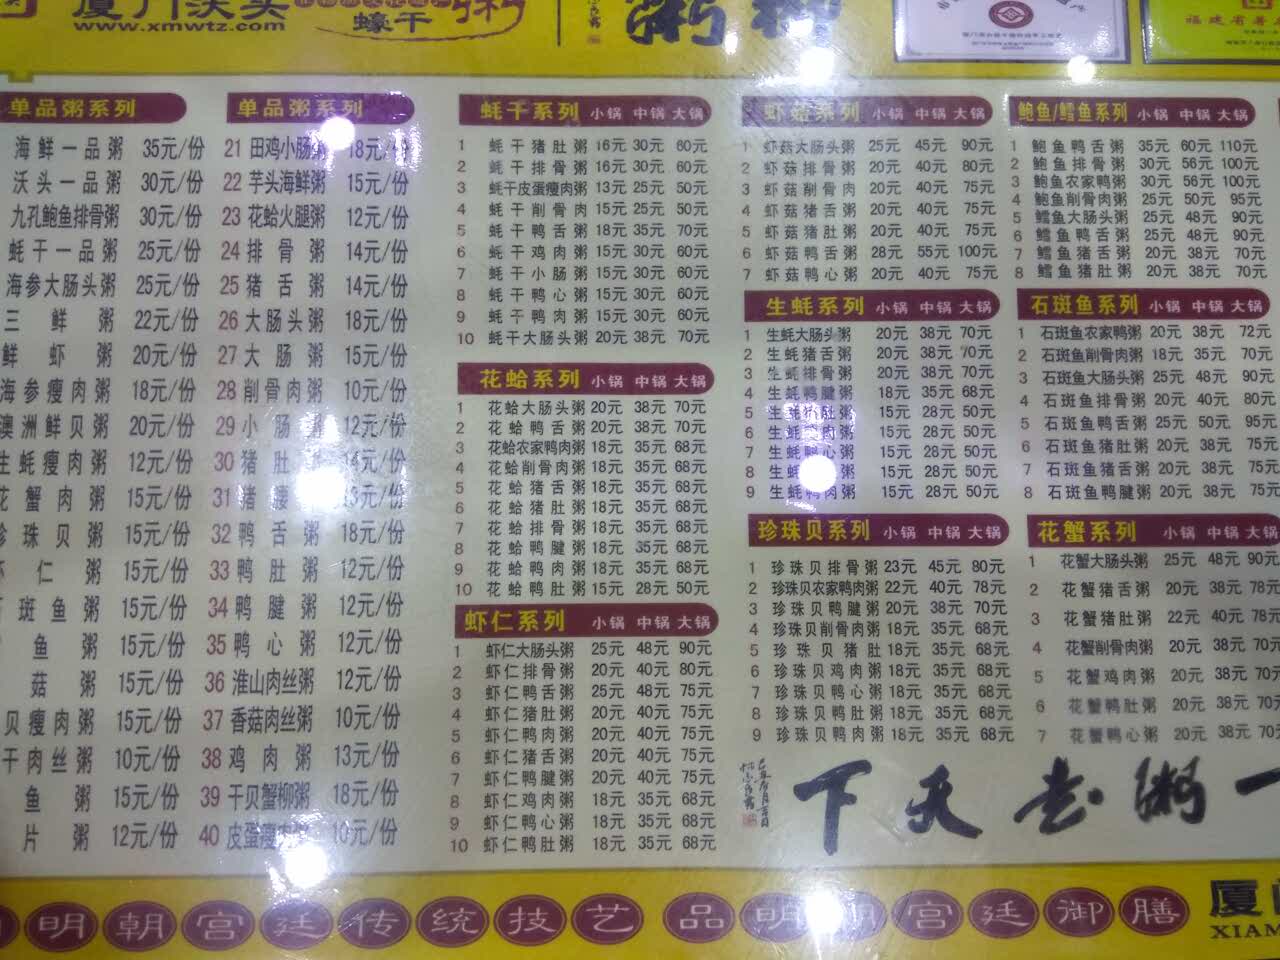 厦门沃头
www.xmwtz.com
蠔干粥
单品粥系列
海鲜一品粥 35元/份
沃头一品粥 30元/份
九孔鲍鱼排骨粥 30元/份
蚝干一品粥 25元/份
海参大肠头粥 25元/份
三鲜粥 22元/份
鲜虾粥 20元/份
海参瘦肉粥 18元/份
澳洲鲜贝粥 20元/份
生蚝瘦肉粥 12元/份
花蟹肉粥 15元/份
珍珠贝粥 15元/份
仁粥 15元/份
斑鱼粥 15元/份
鱼粥 15元/份
菇粥 15元/份
贝瘦肉粥 15元/份
干肉丝粥 10元/份
鱼粥 15元/份
片粥 12元/份
单品粥系列
21 田鸡小肠粥 18元/份
22 芋头海鲜粥 15元/份
23 花蛤火腿粥 12元/份
24 排骨粥 14元/份
25 猪舌粥 14元/份
26 大肠头粥 18元/份
27 大肠粥 15元/份
28 削骨肉粥 10元/份
29 小肠粥 12元/份
30 猪肚粥 14元/份
31 猪腰 13元/份
32 鸭舌粥 18元/份
33 鸭肚粥 12元/份
34 鸭腱粥 12元/份
35 鸭心粥 12元/份
36 淮山肉丝粥 12元/份
37 香菇肉丝粥 10元/份
38 鸡肉粥 13元/份
39 干贝蟹柳粥 18元/份
40 皮蛋瘦肉粥 10元/份
蚝干系列 小锅 中锅 大锅
1 蚝干猪肚粥 16元 30元 60元
2 蚝干排骨粥 16元 30元 60元
3 蚝干皮蛋瘦肉粥 13元 25元 50元
4 蚝干削骨肉 15元 25元 50元
5 蚝干鸭舌粥 18元 35元 70元
6 蚝干鸡肉粥 15元 30元 60元
7 蚝干小肠粥 15元 30元 60元
8 蚝干鸭心粥 15元 30元 60元
9 蚝干鸭肉粥 15元 30元 60元
10 蚝干大肠头粥 20元 38元 70元
花蛤系列 小锅 中锅 大锅
1 花蛤大肠头粥 20元 38元 70元
2 花蛤鸭舌粥 20元 38元 70元
3 花蛤农家鸭肉粥 18元 35元 68元
4 花蛤削骨肉粥 18元 35元 68元
5 花蛤猪舌粥 18元 35元 68元
6 花蛤猪肚粥 18元 35元 68元
7 花蛤排骨粥 18元 35元 68元
8 花蛤鸭腱粥 18元 35元 68元
9 花蛤鸭肉粥 18元 35元 68元
10 花蛤鸭肚粥 15元 28元 50元
虾仁系列 小锅 中锅 大锅
1 虾仁大肠头粥 25元 48元 90元
2 虾仁排骨粥 20元 40元 80元
3 虾仁鸭舌粥 25元 48元 75元
4 虾仁猪肚粥 20元 40元 75元
5 虾仁鸭肉粥 20元 40元 75元
6 虾仁猪舌粥 20元 40元 75元
7 虾仁鸭腱粥 20元 40元 75元
8 虾仁鸡肉粥 18元 35元 68元
9 虾仁鸭心粥 18元 35元 68元
10 虾仁鸭肚粥 18元 35元 68元
虾菇系列 小锅 中锅 大锅
1 虾菇大肠头粥 25元 45元 90元
2 虾菇排骨粥 20元 40元 80元
3 虾菇削骨肉 20元 40元 75元
4 虾菇猪舌粥 20元 40元 75元
5 虾菇猪肚粥 20元 40元 75元
6 虾菇鸭舌粥 28元 55元 100元
7 虾菇鸭心粥 20元 40元 75元
生蚝系列 小锅 中锅 大锅
1 生蚝大肠头粥 20元 38元 70元
2 生蚝猪舌粥 20元 38元 70元
3 生蚝排骨粥 20元 38元 70元
4 生蚝鸭腱粥 18元 35元 68元
5 生蚝猪肚粥 15元 28元 50元
6 生蚝 肉粥 15元 28元 50元
7 生蚝鸭心粥 15元 28元 50元
8 生蚝 粥 15元 28元 50元
9 生蚝鸭肉粥 15元 28元 50元
珍珠贝系列 小锅 中锅 大锅
1 珍珠贝排骨粥 23元 45元 80元
2 珍珠贝农家鸭肉粥 22元 40元 78元
3 珍珠贝鸭腱粥 20元 38元 70元
4 珍珠贝削骨肉粥 18元 35元 68元
5 珍珠贝猪肚 18元 35元 68元
6 珍珠贝鸡肉粥 18元 35元 68元
7 珍珠贝鸭心粥 18元 35元 68元
8 珍珠贝鸭肚粥 18元 35元 68元
9 珍珠贝鸭肉粥 18元 35元 68元
鲍鱼/鳕鱼系列 小锅 中锅 大锅
1 鲍鱼鸭舌粥 35元 60元 110元
2 鲍鱼排骨粥 30元 56元 100元
3 鲍鱼农家鸭粥 30元 56元 100元
4 鲍鱼削骨肉粥 25元 50元 95元
5 鳕鱼大肠头粥 25元 48元 90元
6 鳕鱼鸭舌粥 25元 48元 90元
7 鳕鱼猪舌粥 20元 38元 70元
8 鳕鱼猪肚粥 20元 38元 70元
石斑鱼系列 小锅 中锅 大锅
1 石斑鱼农家鸭粥 20元 38元 72元
2 石斑鱼削骨肉粥 18元 35元 70元
3 石斑鱼大肠头粥 25元 48元 90元
4 石斑鱼排骨粥 20元 40元 80元
5 石斑鱼鸭舌粥 25元 50元 95元
6 石斑鱼猪肚粥 20元 38元 75元
7 石斑鱼猪舌粥 20元 38元 75元
8 石斑鱼鸭腱粥 20元 38元 75元
花蟹系列 小锅 中锅 大锅
1 花蟹大肠头粥 25元 48元 90元
2 花蟹猪舌粥 20元 38元 78元
3 花蟹猪肚粥 22元 40元 78元
4 花蟹削骨肉粥 20元 38元 70元
5 花蟹鸡肉粥 20元 38元 70元
6 花蟹鸭肚粥 20元 38元 70元
7 花蟹鸭心粥 20元 38元 70
下天老粥一
明朝宫廷传统技艺 品明朝宫廷御膳
厦
XIAM